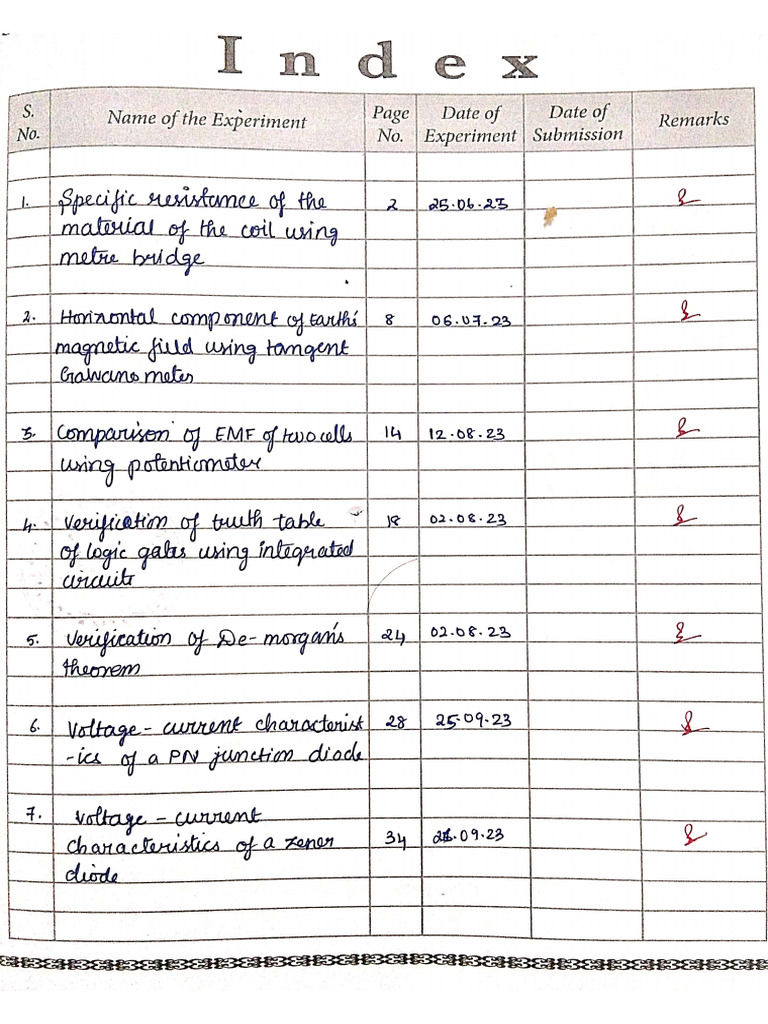 Index
S. No. Name of the Experiment Page No. Date of Experiment Date of Submission Remarks
1. Specific resistance of the 2 25.06.23
material of the coil using
metre bridge
2. Horizontal component of Earth's 8 06.07.23
magnetic field using tangent
Galvanometer
3. Comparison of EMF of two cells 14 12.08.23
using potentiometer
4. Verification of truth table 18 02.08.23
of logic gates using integrated
circuits
5. Verification of De-morgan's 24 02.08.23
theorem
6. Voltage - current characterist 28 25.09.23
-ics of a PN junction diode
7. Voltage - current
characteristics of a zener 34 .09.23
diode